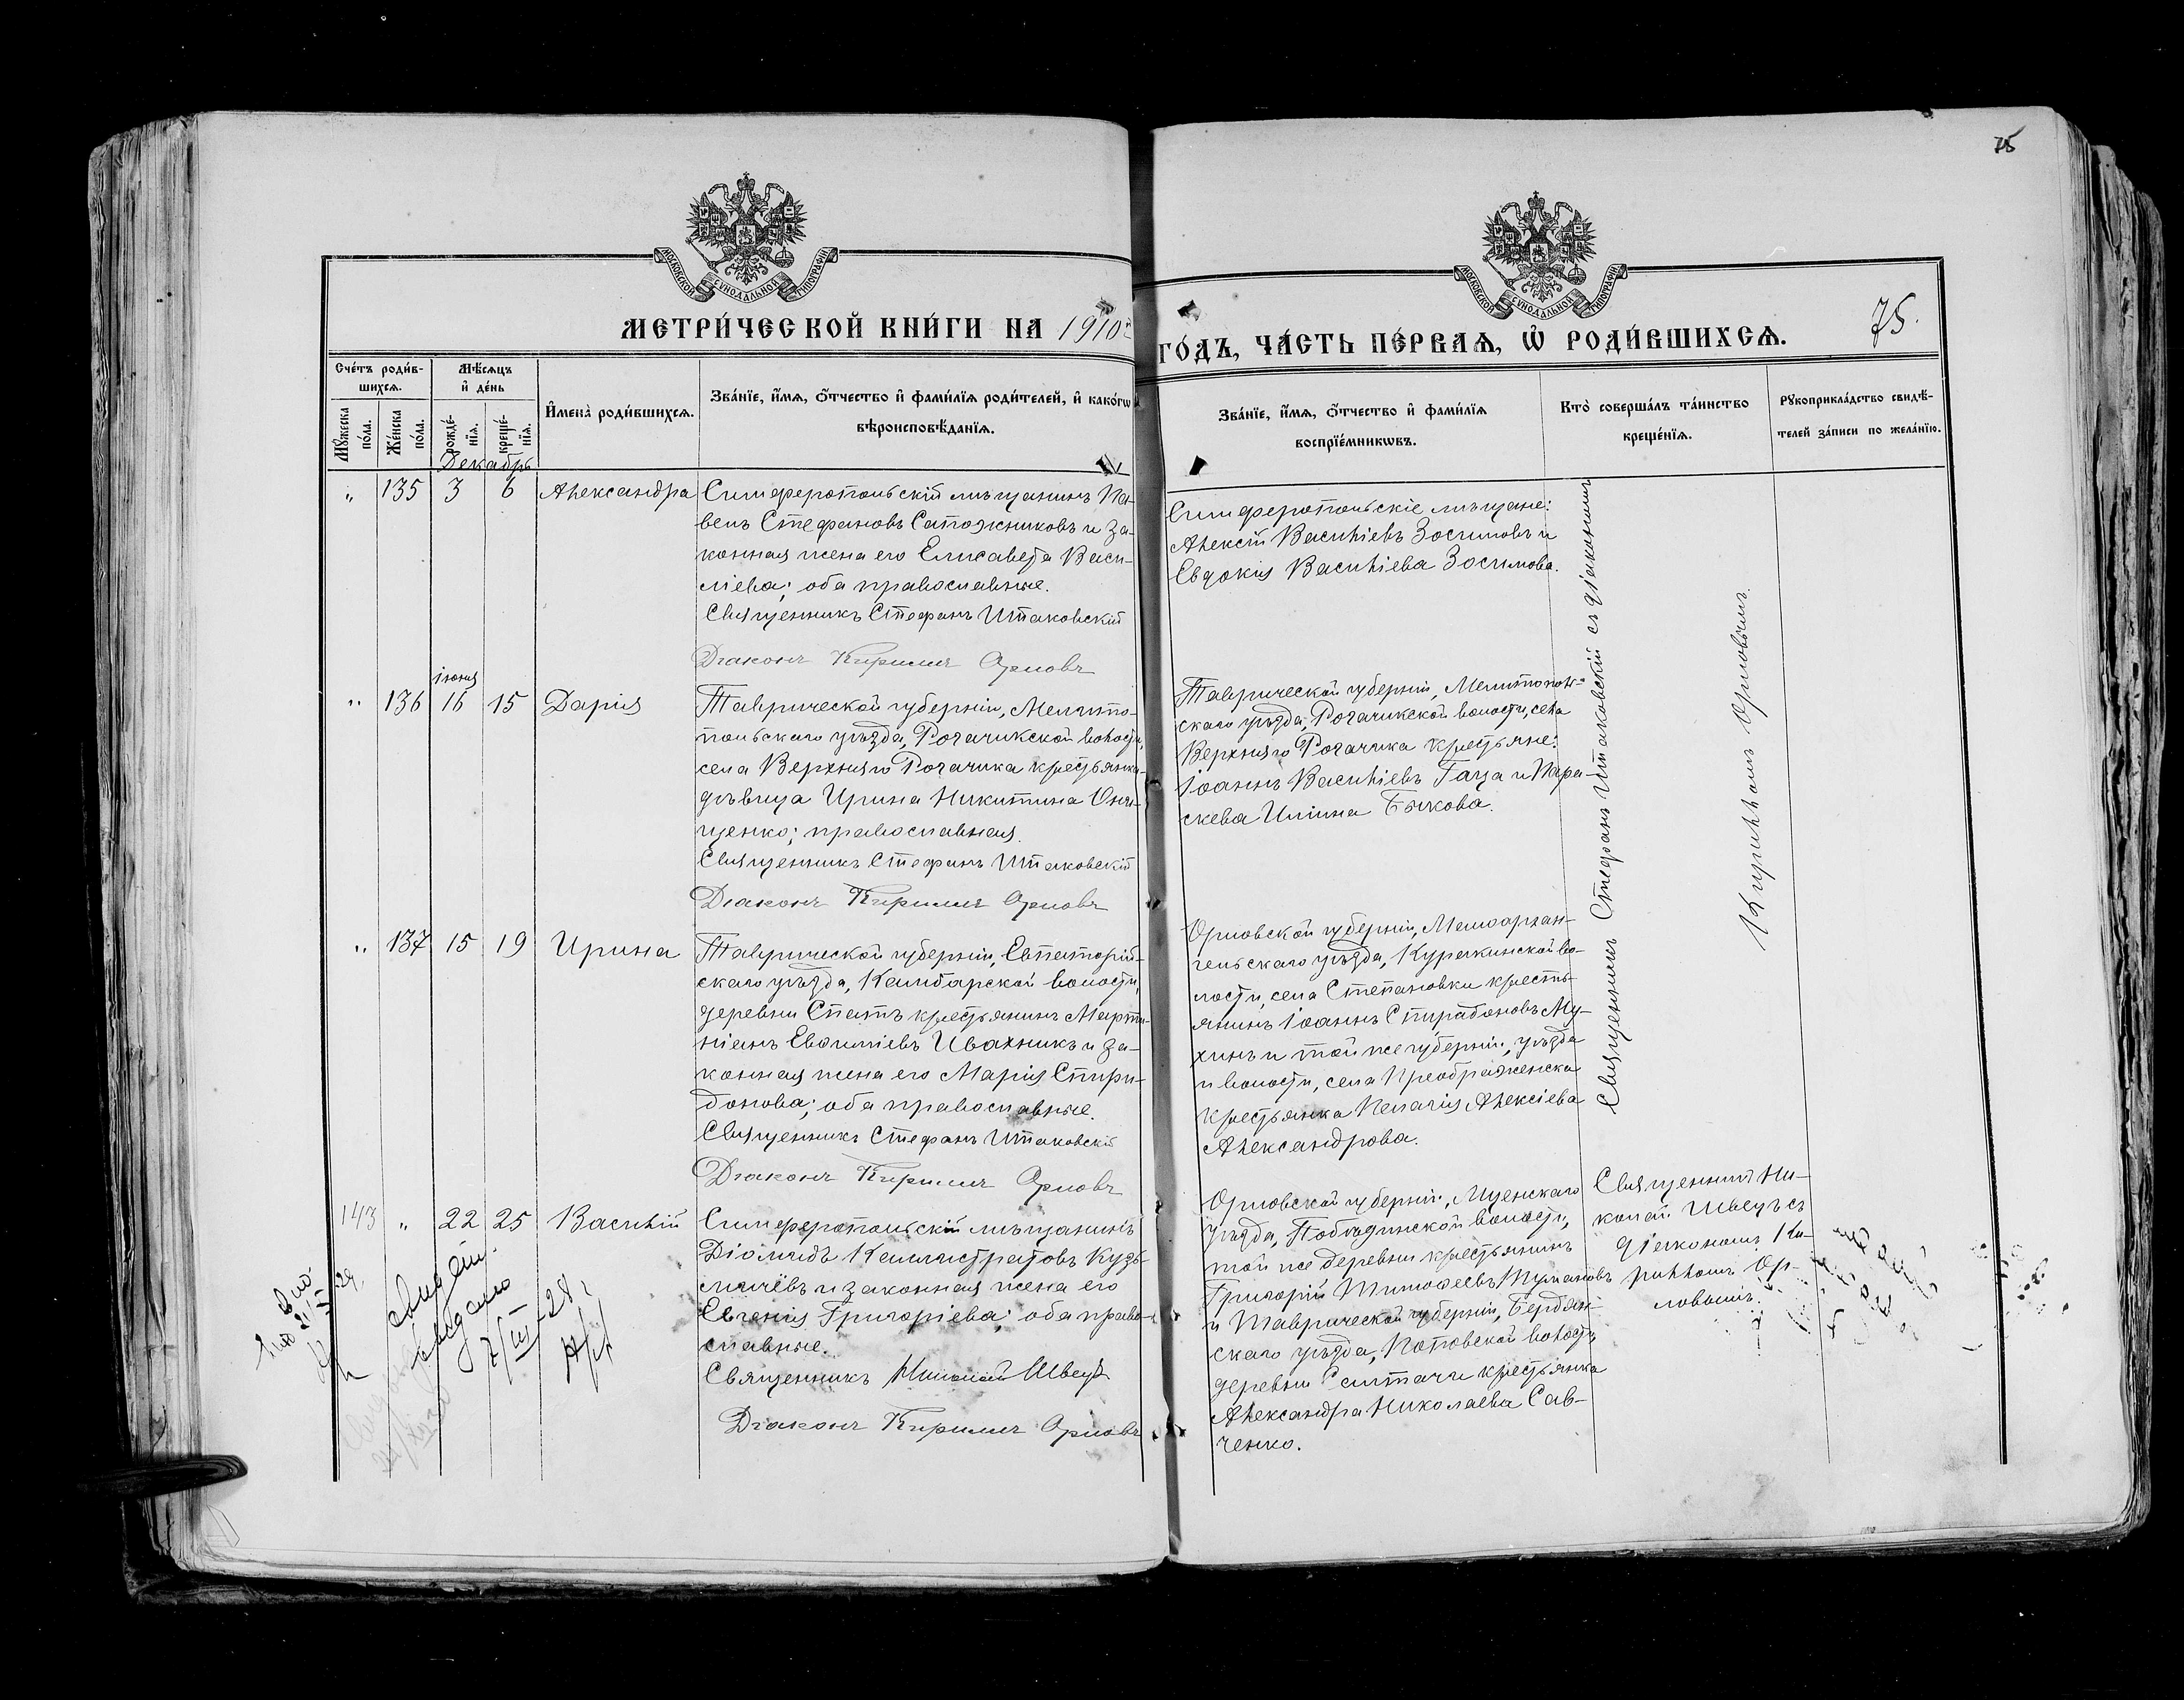 75
МОСКОВСКОЙ СУНОДАЛЬНОЙ ТИПОГРАФІИ
МОСКОВСКОЙ СУНОДАЛЬНОЙ ТИПОГРАФІИ
МЕТРИ́ЧЕСКОЙ КНИ́ГИ НА 1910
ГО́ДЪ, ЧА́СТЬ ПЕ́РВАѦ, Ѽ РОДИ́ВШИХСѦ.
75.
Сче́тъ роди́в-
шихсѧ.
Мꙋ́жеска по́ла.
Же́нска по́ла.
Мѣ́сѧцъ
и҆ де́нь
рожде́-
нїѧ.
креще́-
нїѧ.
И҆мена̀ роди́вшихсѧ.
Зва́нїе, и҆́мѧ, ѻ҆́тчество и҆ фами́лїѧ роди́телей, и҆ како́гѡ
вѣроисповѣ́данїѧ.
Зва́нїе, и҆́мѧ, ѻ҆́тчество и҆ фами́лїѧ
воспрїе́мникѡвъ.
Кто̀ соверша́лъ та́инство
креще́нїѧ.
Рꙋкоприкла́дство свидѣ́-
телей за́писи по жела́нїю.
Декабрь
" 135 3 6 Александра
Симферопольскій мѣщанинъ Па-
велъ Стефановъ Сапожниковъ и за-
конная жена его Елисавета Васи-
ліева; оба православные.
Священникъ Стефанъ Штаковскій
Діаконъ Кириллъ Орловъ
Симферопольскіе мѣщане:
Алексій Василіевъ Зосимовъ и
Евдокія Василіева Зосимова.
Священникъ Стефанъ Штаковскій съ діакономъ
Кирилломъ Орловымъ.
іюня
" 136 16 15 Дарія
Таврической губерніи, Мелито-
польскаго уѣзда, Рогачикской волости,
села Верхняго Рогачика крестьянка
дѣвица Ирина Никитина Они-
щенко; православная.
Священникъ Стефанъ Штаковскій
Діаконъ Кириллъ Орловъ
Таврической губерніи, Мелитополь-
скаго уѣзда, Рогачикской волости, села
Верхняго Рогачика крестьяне:
Іоаннъ Василіевъ Гаца и Пара-
скева Иліина Бычкова.
" 137 15 19 Ирина
Таврической губерніи, Евпаторій-
скаго уѣзда, Камбарской волости,
деревни Спатъ крестьянинъ Марти-
ніанъ Евфиміевъ Ивахникъ и за-
конная жена его Марія Спири-
донова; оба православные.
Священникъ Стефанъ Штаковскій
Діаконъ Кириллъ Орловъ
Орловской губерніи, Малоархан-
гельскаго уѣзда, Куракинской во-
лости, села Степановки кресть-
янинъ Іоаннъ Спиридоновъ Му-
хинъ и той же губерніи, уѣзда
и волости, села Преображенска
крестьянка Пелагія Алексіева
Александрова.
143 " 22 25 Василій
Симферопольскій мѣщанинъ
Діомидъ Каллистратовъ Кузь-
мичёвъ и законная жена его
Евгенія Григоріева; оба право-
славные.
Священникъ Николай Швецъ
Діаконъ Кириллъ Орловъ
Орловской губерніи, Мценскаго
уѣзда, волости,
той же деревни крестьянинъ
Григорій Тимофеевъ Тумановъ
и Таврической губерніи, Бердян-
скаго уѣзда, Поповской волости,
деревни крестьянка
Александра Николаева Сав-
ченко.
Священникъ Ни-
колай Швецъ съ
діакономъ Ки-
рилломъ Ор-
ловымъ.
выдано
7/III-28